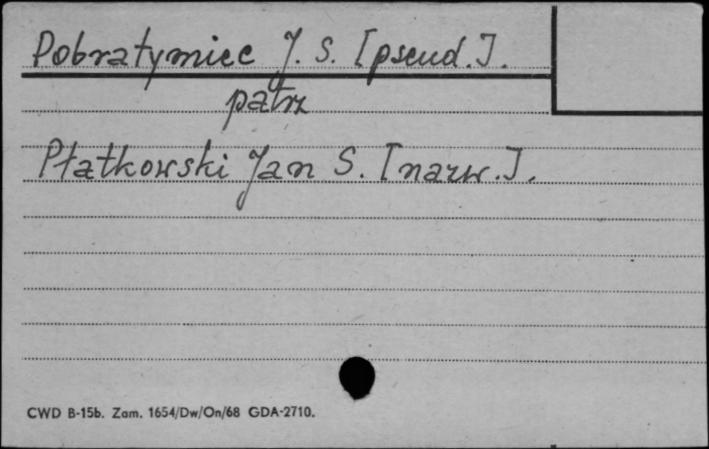 Pobratymiec J. S. [pseud.].
patrz
Płatkowski Jan S. [nazw.].
CWD B-15b. Zam. 1654/Dw/On/68 GDA-2710.